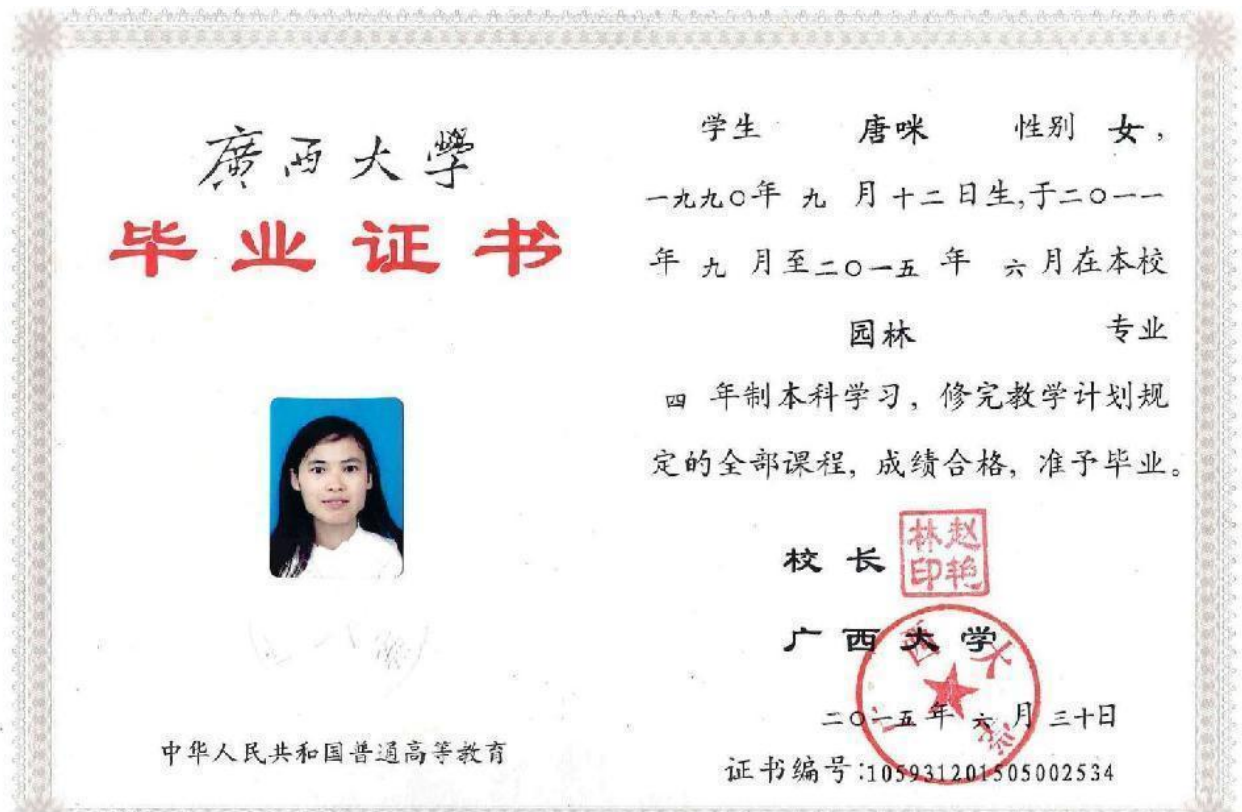 廣西大學
毕业证书
中华人民共和国普通高等教育
学生 唐咪 性别 女,
一九九〇年 九 月十二日生,于二〇一一
年 九 月至二〇一五 年 六 月在本校
园林 专业
四 年制本科学习, 修完教学计划规
定的全部课程, 成绩合格, 准予毕业。
校 长
赵艳林印
广 西 大 学
广西大学
二〇一五年 六 月三十日
证书编号:105931201505002534